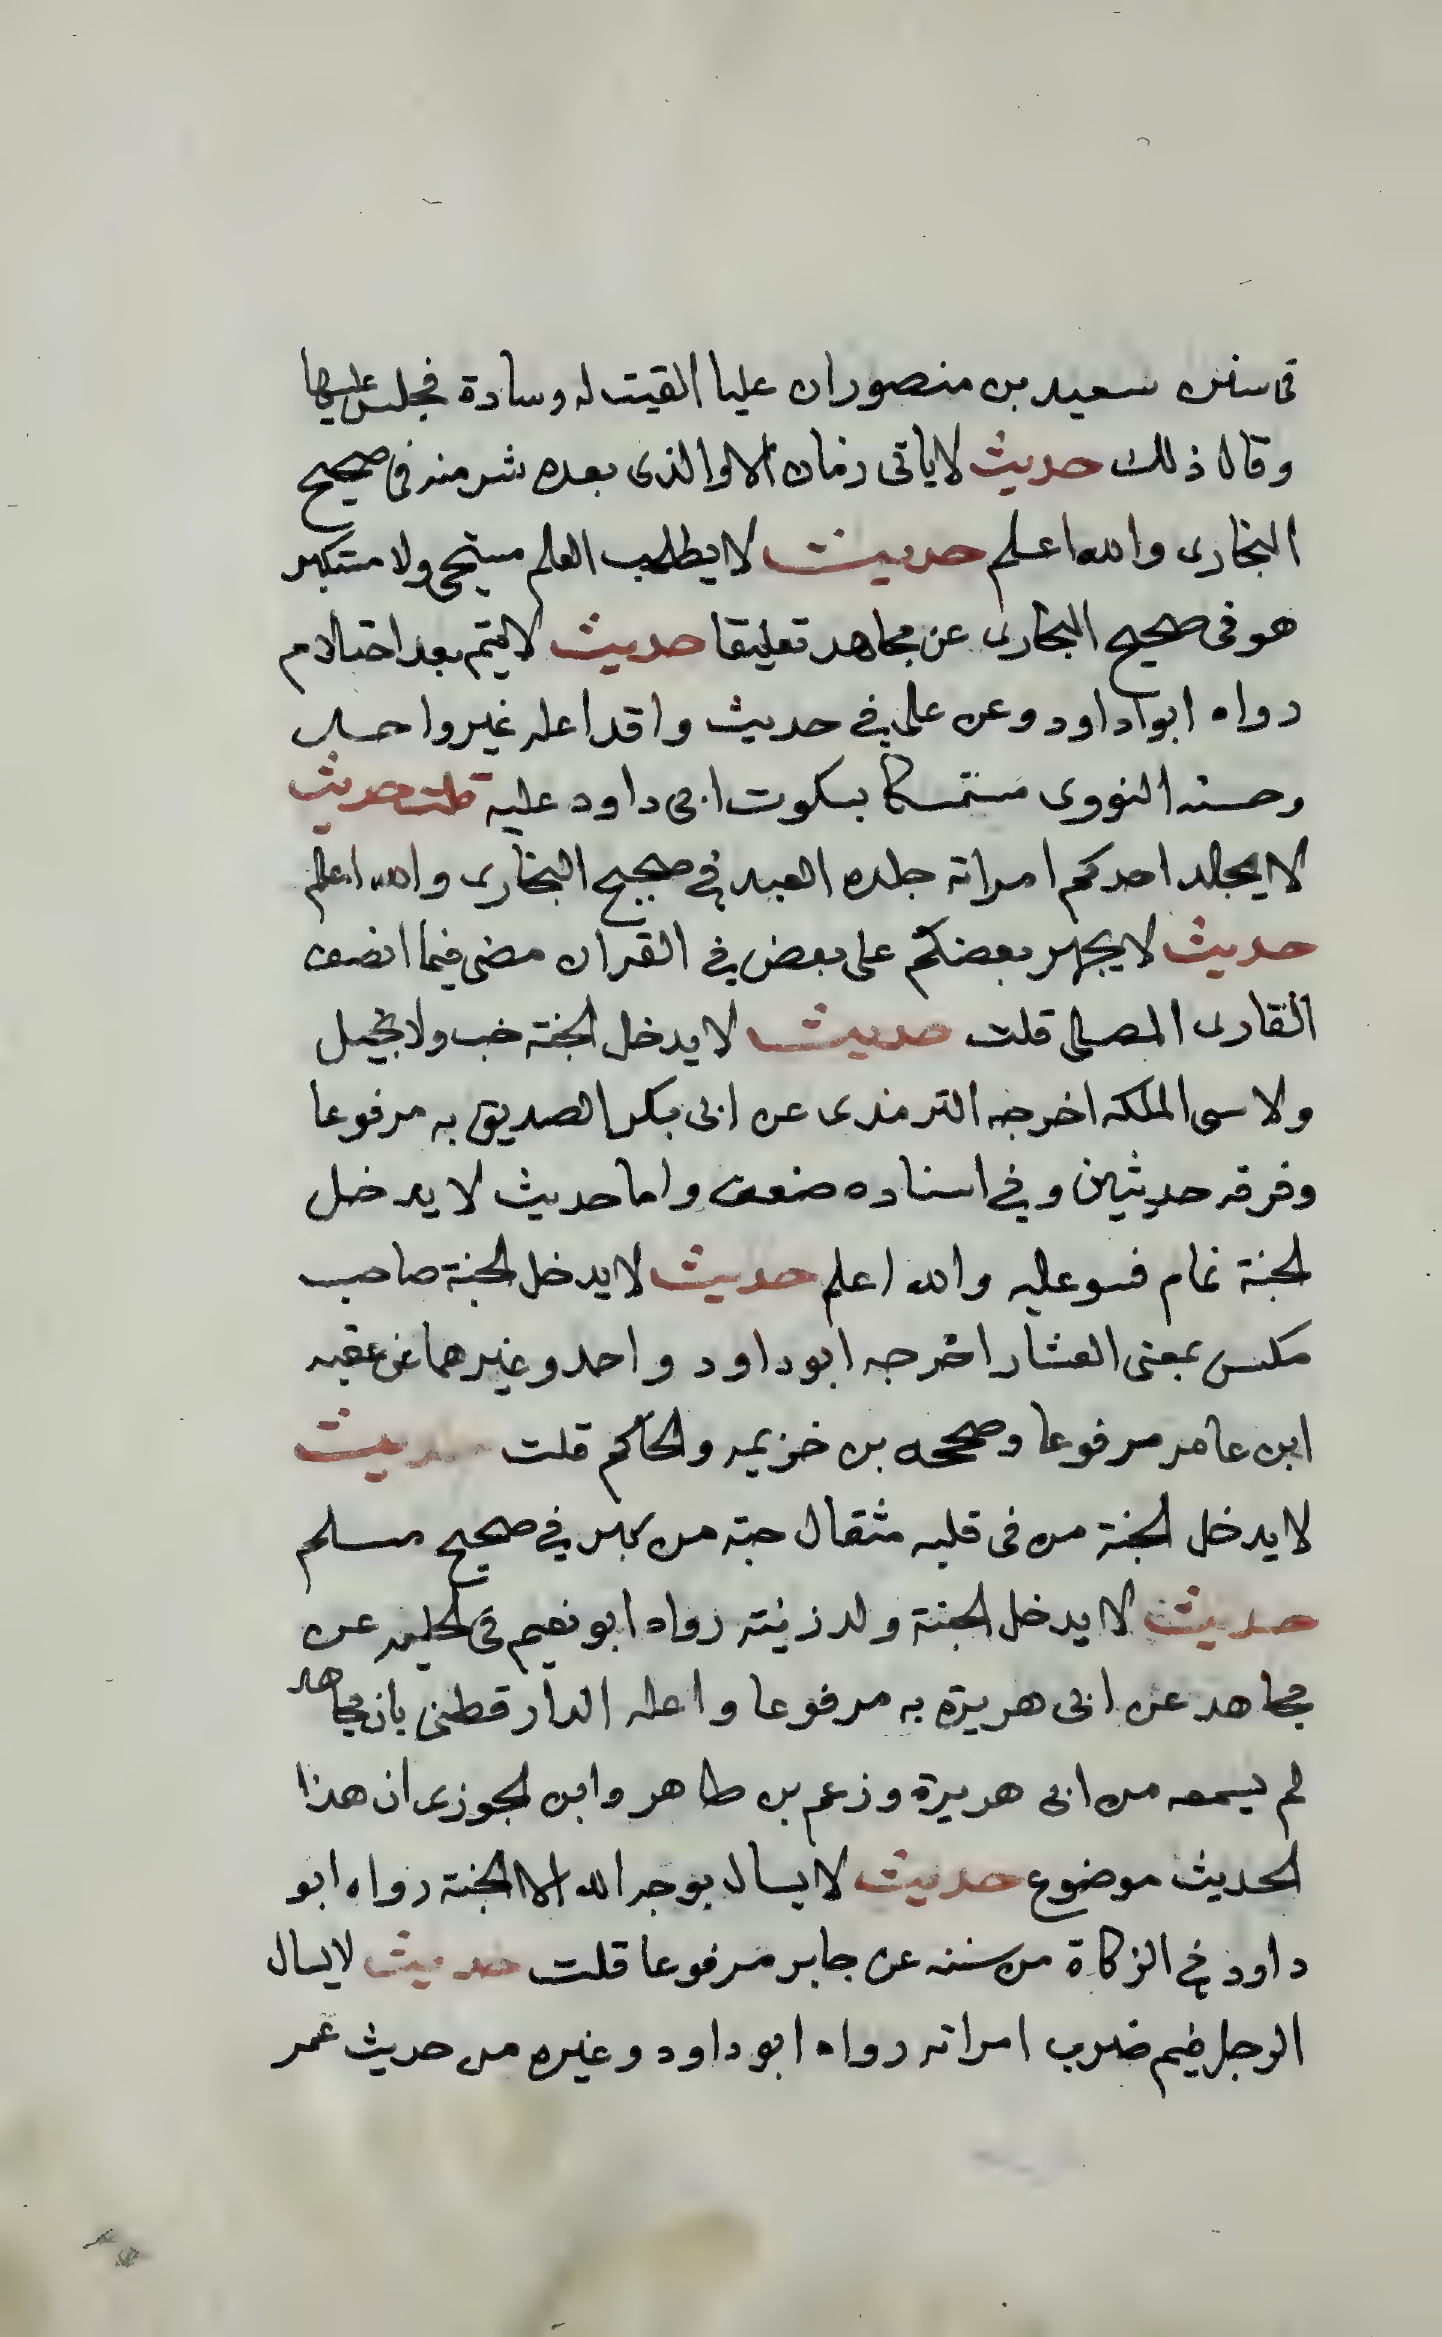 فى سنن سعيد بن منصور ان عليا القيت له وسادة فجلس عليها
وقال ذلك حديث لا ياتى زمان الا والذى بعده شر منه فى صحيح
البخارى والله اعلم حديث لا يطلب العلم مستحى ولا متكبر
هو فى صحيح البخارى عن مجاهد تعليقا حديث لا يتم بعد احتلام
رواه ابوا داود وعن على في حديث واقد اعله غير واحد
وحسنه النووى متمسكا بسكوت ابى داود عليه قلت حديث
لا يجلد احدكم امراته جلده العبد في صحيح البخارى والله اعلم
حديث لا يجهر بعضكم على بعض في القران مضى فيما انصف
القارى المصلى قلت حديث لا يدخل الجنة خب ولا بخيل
ولا سى الملكه اخرجه الترمذى عن ابى بكر الصديق به مرفوعا
وفرقه حديثين وفي اسناده ضعف واما حديث لا يدخل
الجنة نمام فسو عليه والله اعلم حديث لا يدخل الجنة صاحب
مكس بمعنى العشار اخرجه ابو داود واحمد وغيرهما عن عقبه
ابن عامر مرفوعا وصححه بن خزيمه والحاكم قلت حديث
لا يدخل الجنة من فى قلبه مثقال حبة من كبر في صحيح مسلم
حديث لا يدخل الجنة ولد زنيته رواه ابو نعيم فى الحليه عن
مجاهد عن ابى هريرة به مرفوعا واعله الدارقطنى بان مجاهد
لم يسمعه من ابى هريرة وزعم بن طاهر وابن الجوزى ان هذا
الحديث موضوع حديث لا يسال بوجه الله الا الجنة رواه ابو
داود في الزكاة من سننه عن جابر مرفوعا قلت حديث لا يسال
الرجل فيم ضرب امراته رواه ابو داود وغيره من حديث عمر